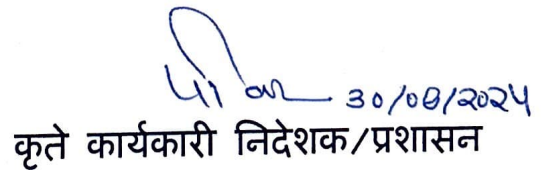 30/08/2024
कृते कार्यकारी निदेशक/प्रशासन